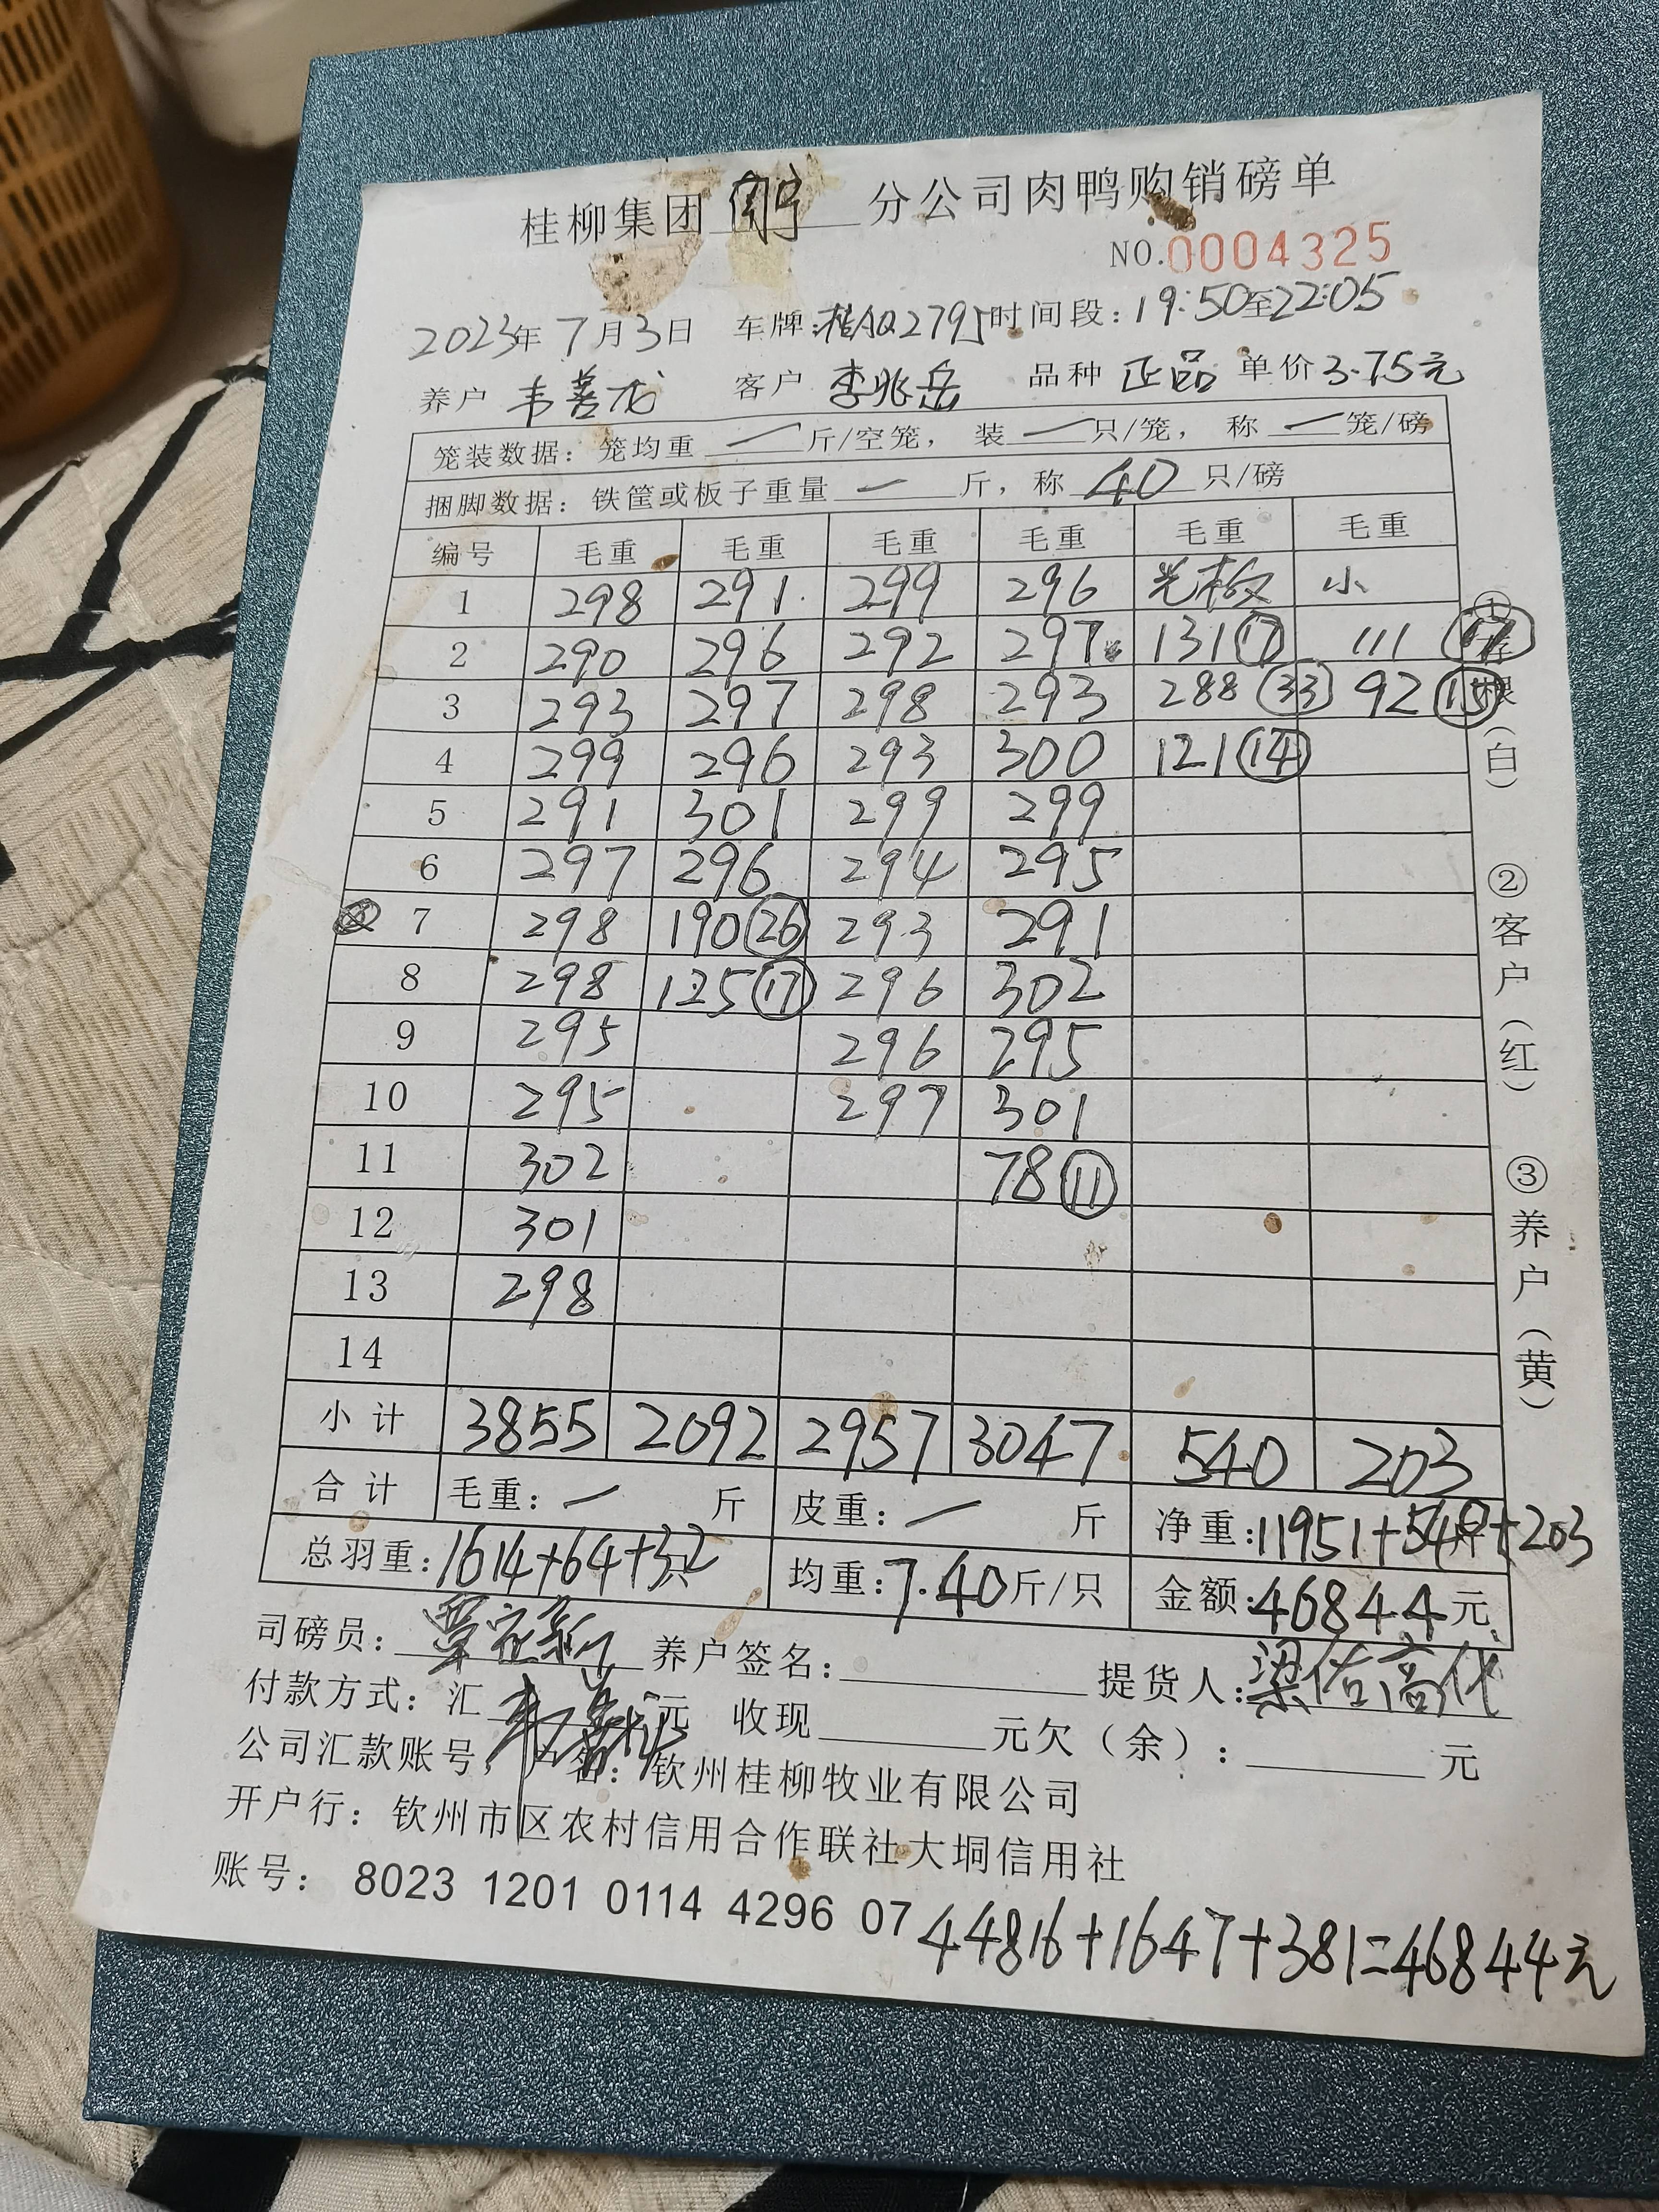 桂柳集团 南宁 分公司肉鸭购销磅单
NO.0004325
2023年 7月3日 车牌:桂AQ2795 时间段:19:50至22:05
养户 韦善龙 客户 李兆岳 品种 正品 单价 3.75元
笼装数据：笼均重 一 斤/空笼， 装 一 只/笼， 称 一 笼/磅
捆脚数据：铁筐或板子重量 一 斤，称 40 只/磅
编号 毛重 毛重 毛重 毛重 毛重 毛重
1 298 291. 299 296 光板 小
2 290 296 292 297 131⑰ 111
3 293 297 298 293 288㉝ 92⑮
4 299 296 293 300 121⑭
5 291 301 299 299
6 297 296 294 295
7 298 190㉖ 293 291
8 298 125⑰ 296 302
9 295 296 295
10 295 297 301
11 302 78⑪
12 301
13 298
14
小计 3855 2092 2957 3047 540 203
合计 毛重：一 斤 皮重：一 斤 净重:11951+540+203
总羽重:1614+64+32只 均重:7.40斤/只 金额:46844元
司磅员： 养户签名： 提货人:
付款方式：汇 元 收现 元欠（余）： 元
公司汇款账号， 户名：钦州桂柳牧业有限公司
开户行：钦州市区农村信用合作联社大垌信用社
账号： 8023 1201 0114 4296 07
44816+1647+381=46844元
①存根（白）
②客户（红）
③养户（黄）